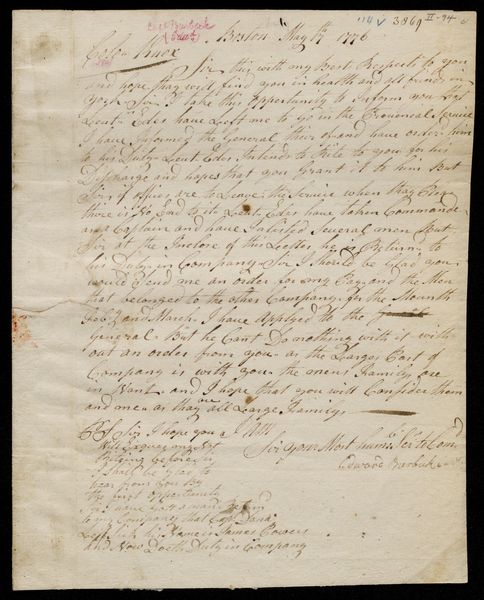 Capt Burbeck
(Edwd)
114 V 3869 II-94
Boston May 1776
Colo Knox
Sir this with my Best Respects to you
and hope thay will find you in health and all friends in
York Sir I take this oppertunity to Inform you that
Leut Edes have Left me to go in the Provencel Service
I have Informed the General their of and have order him
to his Duty Leut Edes Intends to Rite to you for his
Discharge and hopes that you Grant it to him But
Sir if offices are to Leave the Service when thay Please
there is No End to it Leut Edes have taken Command
as a Captain and have Inlisted Several men But
Sir at the Inclose of this Letter he is Return to
his Duty in Company Sir I Should be Glad you
would Send me an order for my Pay and the Men
that belonged to the other Company for the Mounth
Feby and March I have Applyed to the
general But he Cant Do mothing with it with
out an order from you as the Larges Part of
Company is with you the mens Familys are
in Want and I hope that you will Consider them
and me as thay are all Large Familys
PS Sir I hope you
Sir your Most humb Sert to Comd
Edward Burbeck
I Shall be Glad to
hear from you By
the first oppertunity
Sir I have got a man Return
to my Company that Capt
Left Sick his Name is James Powers
and Now Doeth Duty in Company